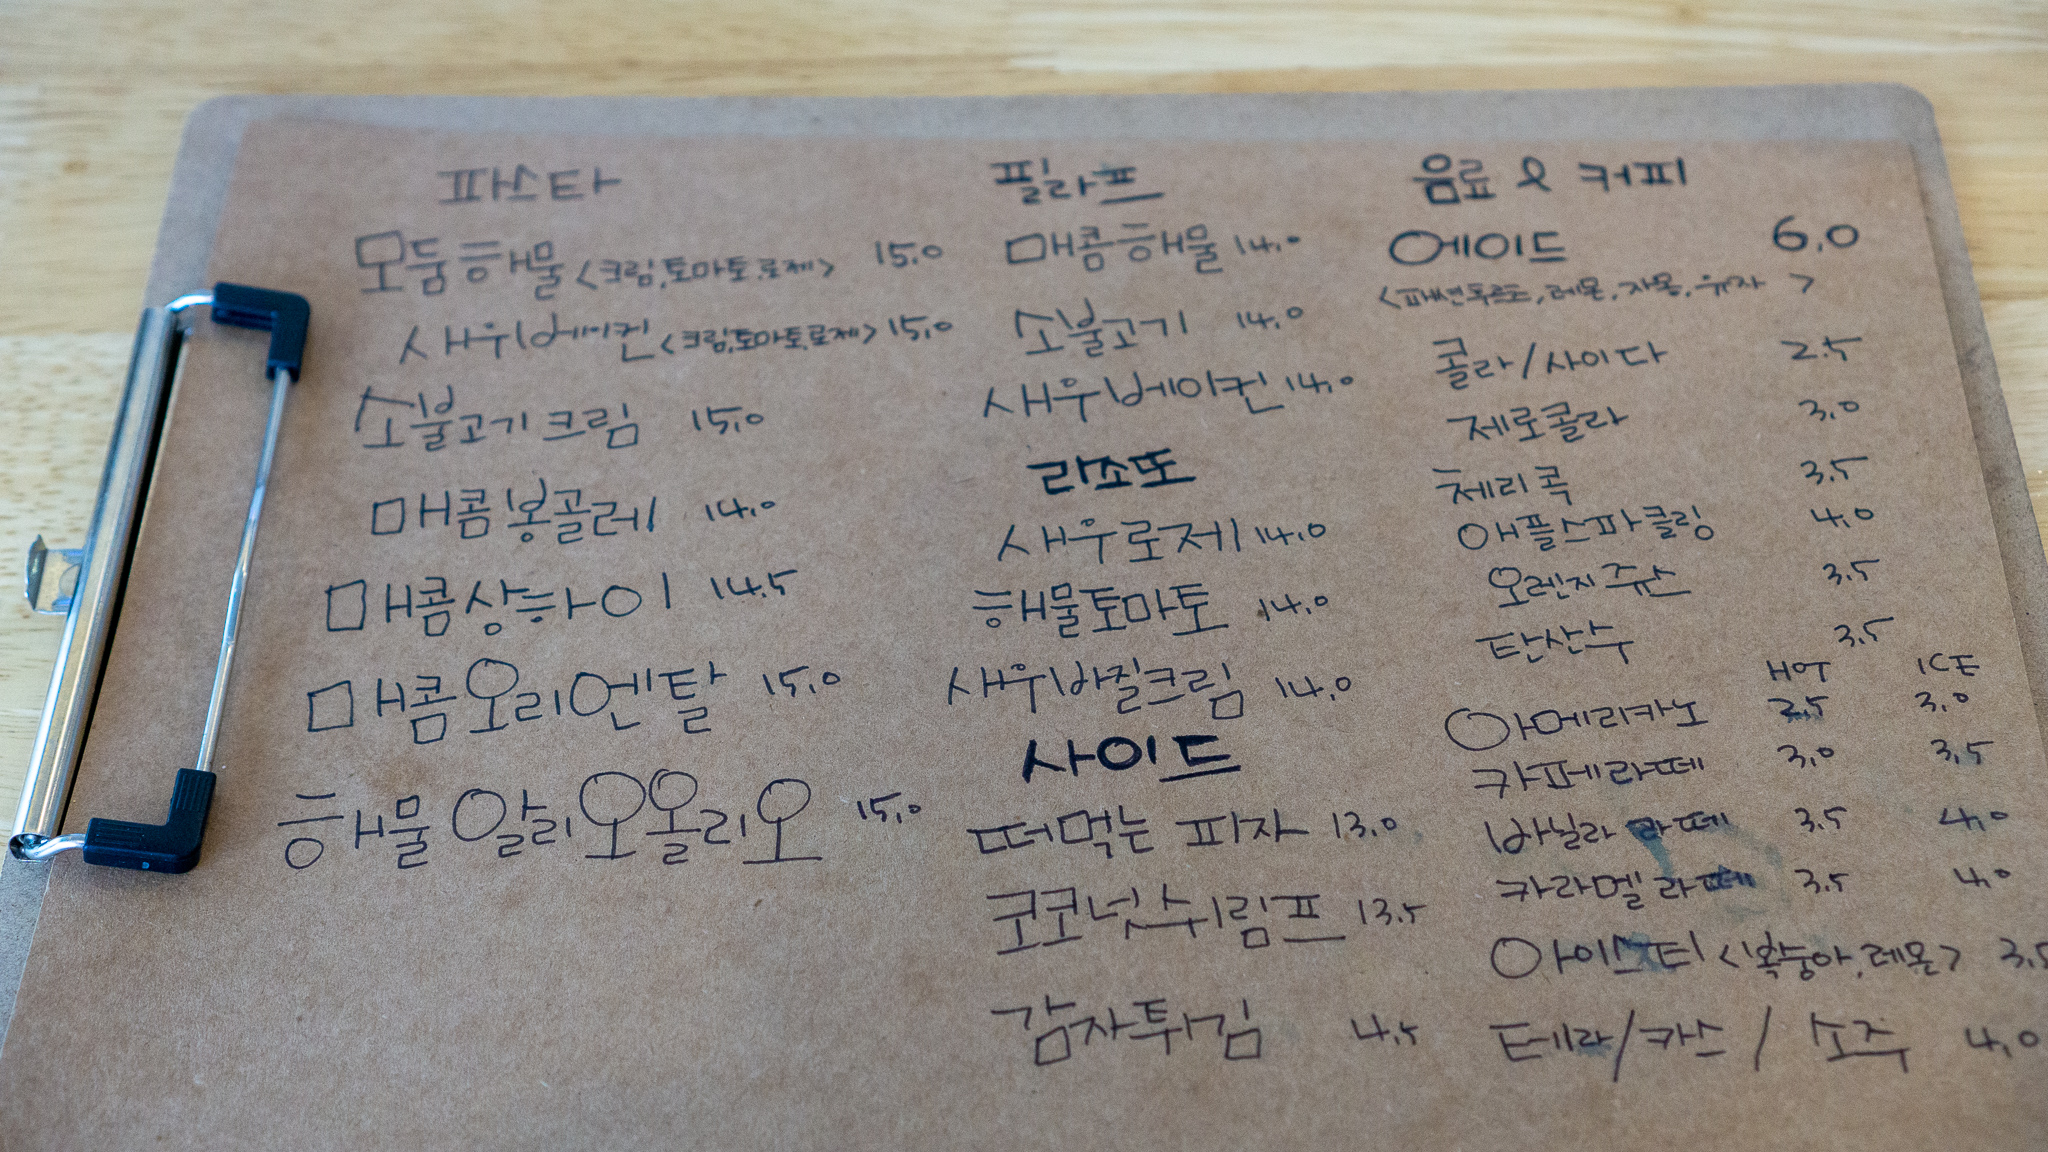 파스타
모둠해물 <크림,토마토,로제> 15.0
새우베이컨 <크림,토마토,로제> 15.0
소불고기 크림 15.0
매콤봉골레 14.0
매콤상하이 14.5
매콤오리엔탈 15.0
해물알리오올리오 15.0
필라프
매콤해물 14.0
소불고기 14.0
새우베이컨 14.0
리조또
새우로제 14.0
해물토마토 14.0
새우바질크림 14.0
사이드
떠먹는 피자 13.0
코코넛쉬림프 13.5
감자튀김 4.5
음료 & 커피
에이드 6.0
<패션후르츠, 레몬, 자몽, 유자>
콜라/사이다 2.5
제로콜라 3.0
체리콕 3.5
애플스파클링 4.0
오렌지쥬스 3.5
탄산수 3.5
HOT ICE
아메리카노 2.5 3.0
카페라떼 3.0 3.5
바닐라 라떼 3.5 4.0
카라멜 라떼 3.5 4.0
아이스티 <복숭아, 레몬> 3.5
테라/카스/소주 4.0